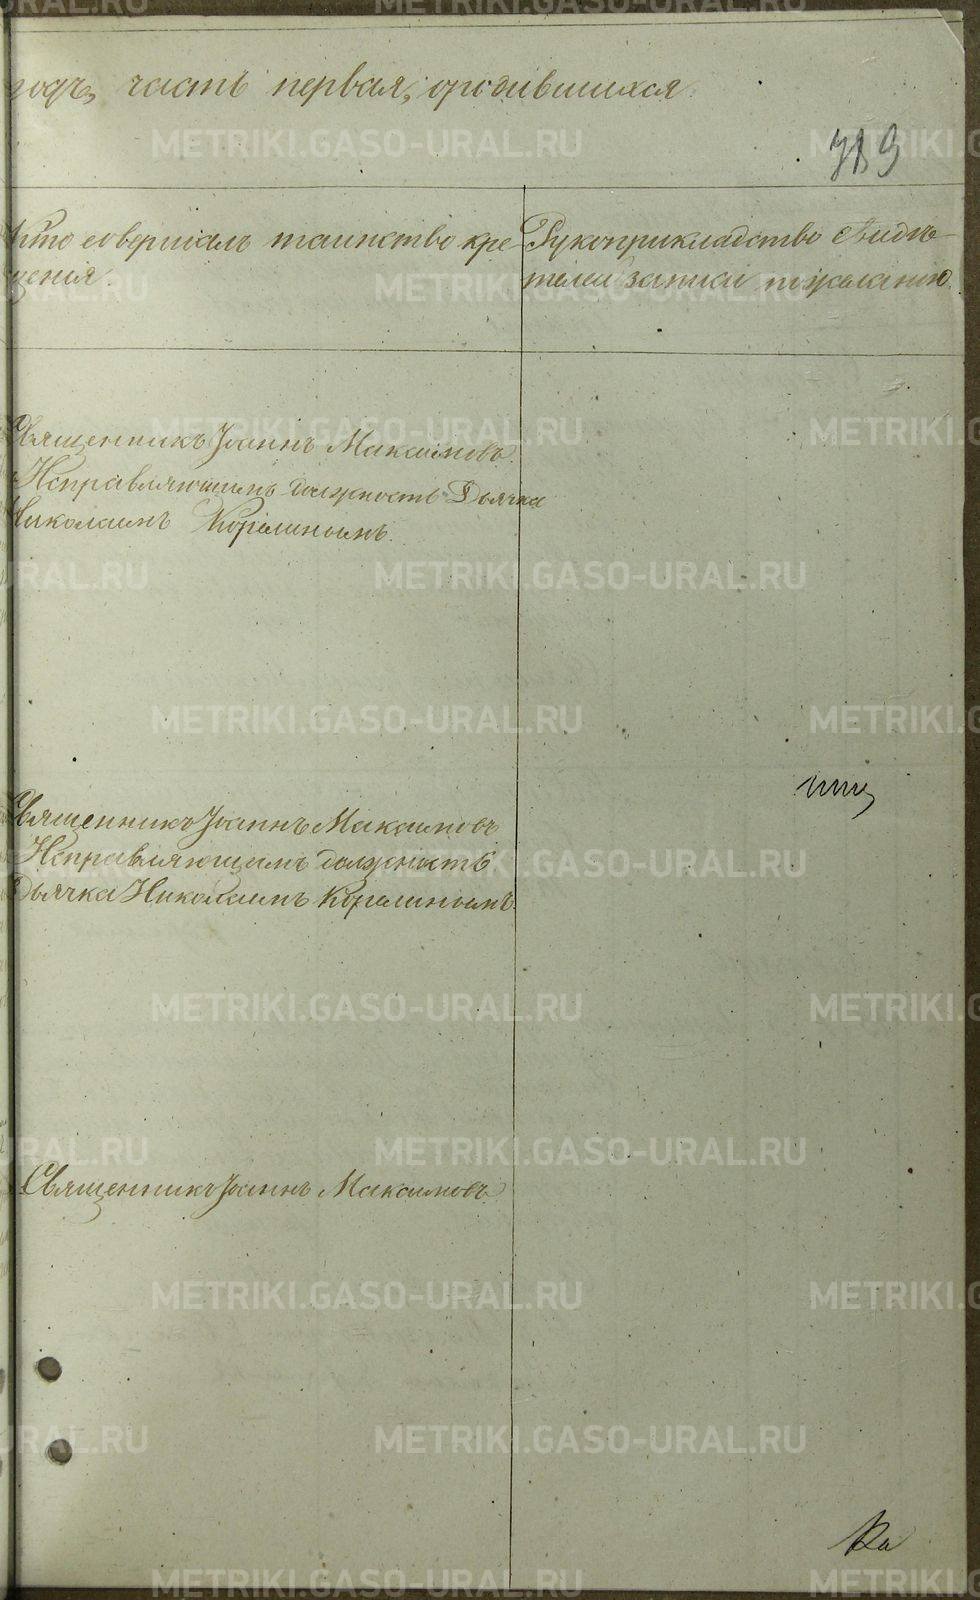 годъ, часть первая, ородившихся
Кто совершалъ таинство кре-
щенія.
Рукоприкладство Свидѣ-
телей записи пожеланію
Священникъ Іоаннъ Максимовъ
Исправляющимъ должность Дьячка
Николаемъ Корелинымъ.
Священникъ Іоаннъ Максимовъ
Исправляющимъ должность
Дьячка Николаемъ Корелинымъ.
Священникъ Іоаннъ Максимовъ
METRIKI.GASO-URAL.RU